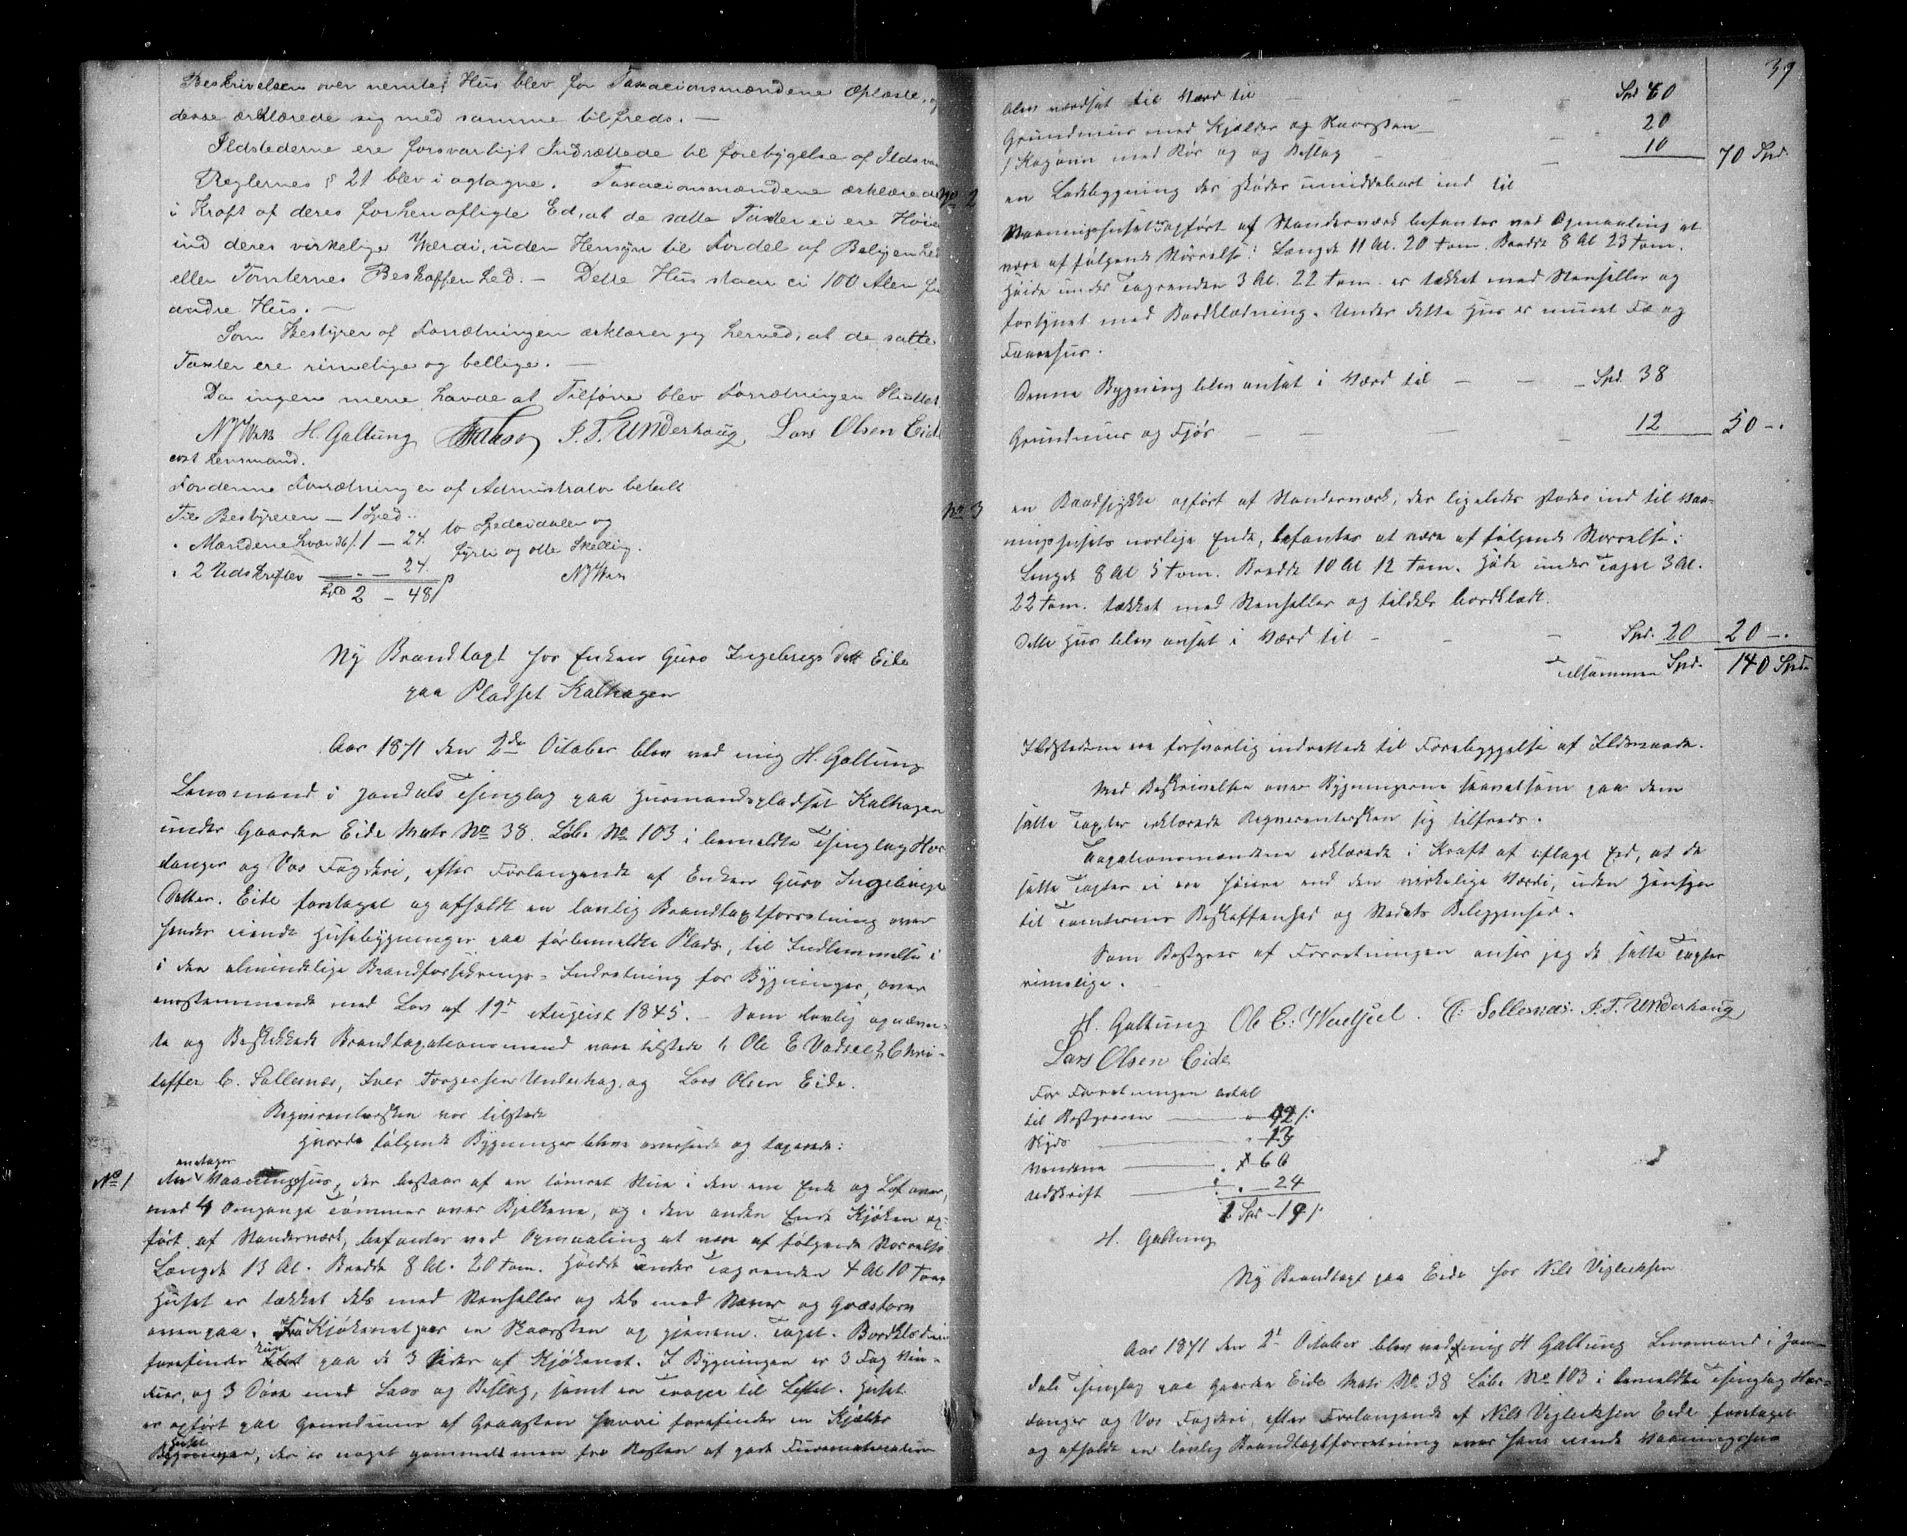 Beskrivelsen over nemte Hus blev for Taxasionsmændene Oplæste, og
desse ærklærede sig med samme tilfreds. —
Ildstederne ere forsvarligt Indrættede til forebygelse af Ildsvaa
Reglernes § 21 blev iagtagne. Taxasionsmændene ærklærede
i Kraft af deres forhen aflagte Ed, at de satte Taxter ei ere Høiere
ind deres virkelige Værdi, uden Hensyn til Fordel af Beligenhed
eller Tomternes Beskaffenhed. — Dette Hus staar ei 100 Alen fra
andre Hus. —
Som Bestyrer af Forrætningen ærklærer jeg herved, at de satte
Taxter ere rimelige og bellige. —
Da ingen mere havde at Tilføre blev Forrætningen Sluttet
H. Galtung I. T. Underhaug Lars Olsen Eide
const Lensmand.
For denne Forrætning er af Administrator betalt
Til Bestyreren — 1 Spd.
" Mændene hver 36/. 1 — 24. to Spesidaler og
" 2 Udskrifter — 24. fyrti og otte Skelling.
Spd 2 — 48 β
Ny Brandtaxt for Enken Guro Ingebrigs Datt Eide
paa Pladset Kalhagen
Aar 1871 den 2de October blev ved mig H. Galtung
Lensmand i Jondals Thinglag paa Husmandspladset Kalhagen
under Gaarden Eide Matr No 38. Løbe No 103 i bemeldte Thinglag Har
danger og Vos Fogderi, efter Forlangende af Enken Guro Ingebrigs
Datter Eide foretaget og afholdt en lovlig Brandtaxtforretning over
hendes eiende Husebygninger paa førbemeldte Plads, til Indlemmelse i
i den almindelige Brandforsikrings-Indretning for Bygninger, over
ensstemmende med Lov af 19de August 1845. — Som lovlig opnævn-
te og Beskikkede Brandtaxationsmænd vare tilstede 1, Ole E Vadsel 2, Chri-
stoffer C. Sollesnæs, Iver Torgersen Underhag, og Lars Olsen Eide.
Reqvirentersken var tilstede
Hvorda følgende Bygninger bleve overseede og taxerede:
No 1
Vaaningshus, der bestaar af en tømret Stue i den ene Ende og Loft over,
med 4 Omgange Tømmer over Bjelkene, og i den anden Ende Kjøken op-
ført af Standerværk, befantes ved Opmaaling at være af følgende Størrelse
Længde 13 Al. Bredde 8 Al. 20 Tom. Høide under Tagrenden 4 Al 10 Tom
Huset er tækket dels med Stenheller og dels med Næver og Græstorv
ovenpaa. Fra Kjøkenet gaar en Skorsten op gjenem Taget. Bordklædni
forefindes kun paa de 3 Sider af Kjøkenet. I Bygningen er 3 Fag Vin-
duer, og 3 Døre med Laas og Beslag, samt en Trappe til Loftet. Huset
er opført paa Grundmur af Graasten hvori forefindes en Kjelder
Huset
, der er noget gammelt men for Resten af gode Furematerialier
39
blev værdsat til Værd til — Spd 40
Grundmur med Kjælder og Skorsten — 20
1 Kogovn med Rør og og Beslag — 10 70 Spd.
No 2 en Ladebygning der støder umiddelbart ind til
Vaaningshuset opført af Standerværk befantes ved Opmaaling at
være af følgende Størrelse: Længde 11 Al. 20 Tom. Bredde 8 Al 23 Tom.
Høide under Tagrenden 3 Al. 22 Tom. er tækket med Stenheller og
forsynet med Bordklædning. Under dette Hus er muret Fæ og
Faarehus.
Denne Bygning blev ansat i Værd til — — — Spd. 38
Grundmur og Fjøs — — — 12 50 —.
No 3 en Baadskykke opført af Standerværk, der ligeledes støder ind til Vaa-
ningshusets nordlige Ende, befantes at være af følgende Størrelse:
Længde 8 Al 5 Tom. Bredde 10 Al 12 Tom. Høide under Taget 3 Al.
22 Tom. tækket med Stenheller og tildels bordklædt.
Dette Hus blev ansat i Værd til — — — Spd. 20 20 —.
Tilsammen Spd. 140 Spd.
Ildstederne ere forsvarlig indrettede til Forebyggelse af Ildsvaade.
Med Beskrivelsen over Bygningerne saavelsom paa dem
satte Taxter erklærede Reqvirentersken sig tilfreds.
Taxationsmændene erklærede i Kraft af aflagt Eed, at de
satte Taxter ei ere høiere end den virkelige Værdi, uden Hensyn
til Tomternes Beskaffenhed og Stedets Beliggenhed.
Som Bestyrer af Forretningen anser jeg de satte Taxter
rimelige.
H. Galtung Ole E. Wadsel. C. Sollesnæs. I. T. Underhaug
Lars Olsen Eide
For Forretningen betal
til Bestyreren —
Skyds —
Mændene — 60
Udskrift — 24
1 Spd — 19 /.
H. Galtung
Ny Brandtaxt paa Eide for Nils Vigleiksen
Aar 1871 den 2de October blev ved mig H Galtung Lensmand i Jon-
dals Thinglag paa Gaarden Eide Matr No 38 Løbe No 103 i bemeldte Thinglag Har-
danger og Vos Fogderi, efter Forlangende af Nils Vigleiksen Eide foretaget
og afholdt en lovlig Brandtaxtforretning over hans eiende Vaaningshus